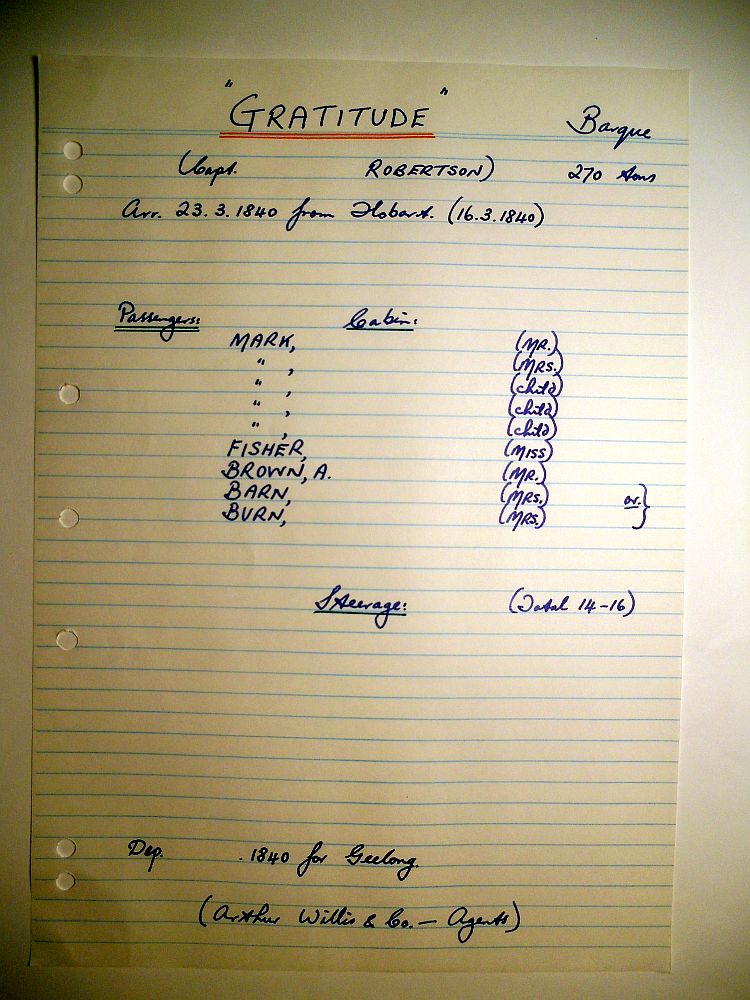 "GRATITUDE" Barque
(Capt. ROBERTSON) 270 tons
Arr. 23.3.1840 from Hobart. (16.3.1840)
Passengers: Cabin:
MARK, (MR.)
" , (MRS.)
" , (child)
" , (child)
" , (child)
FISHER, (MISS)
BROWN, A. (MR.)
BARN, (MRS.) or }
BURN, (MRS.)
Steerage: (Total 14-16)
Dep. .1840 for Geelong.
(Arthur Willis & Co. — Agents)